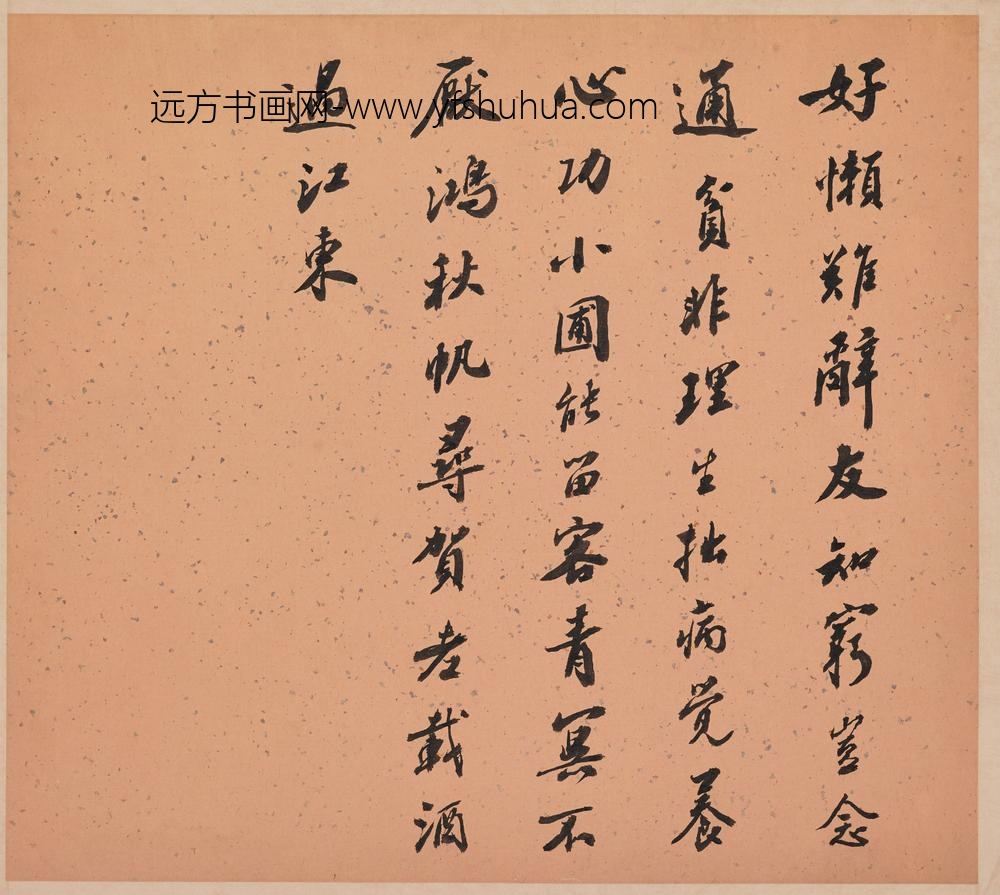 好懶難辭友知窮豈念
通貧非理生拙病覺養
心功小圃能留客青冥不
厭鴻秋帆尋賀老載酒
過江東
远方书画网-www.yfshuhua.com